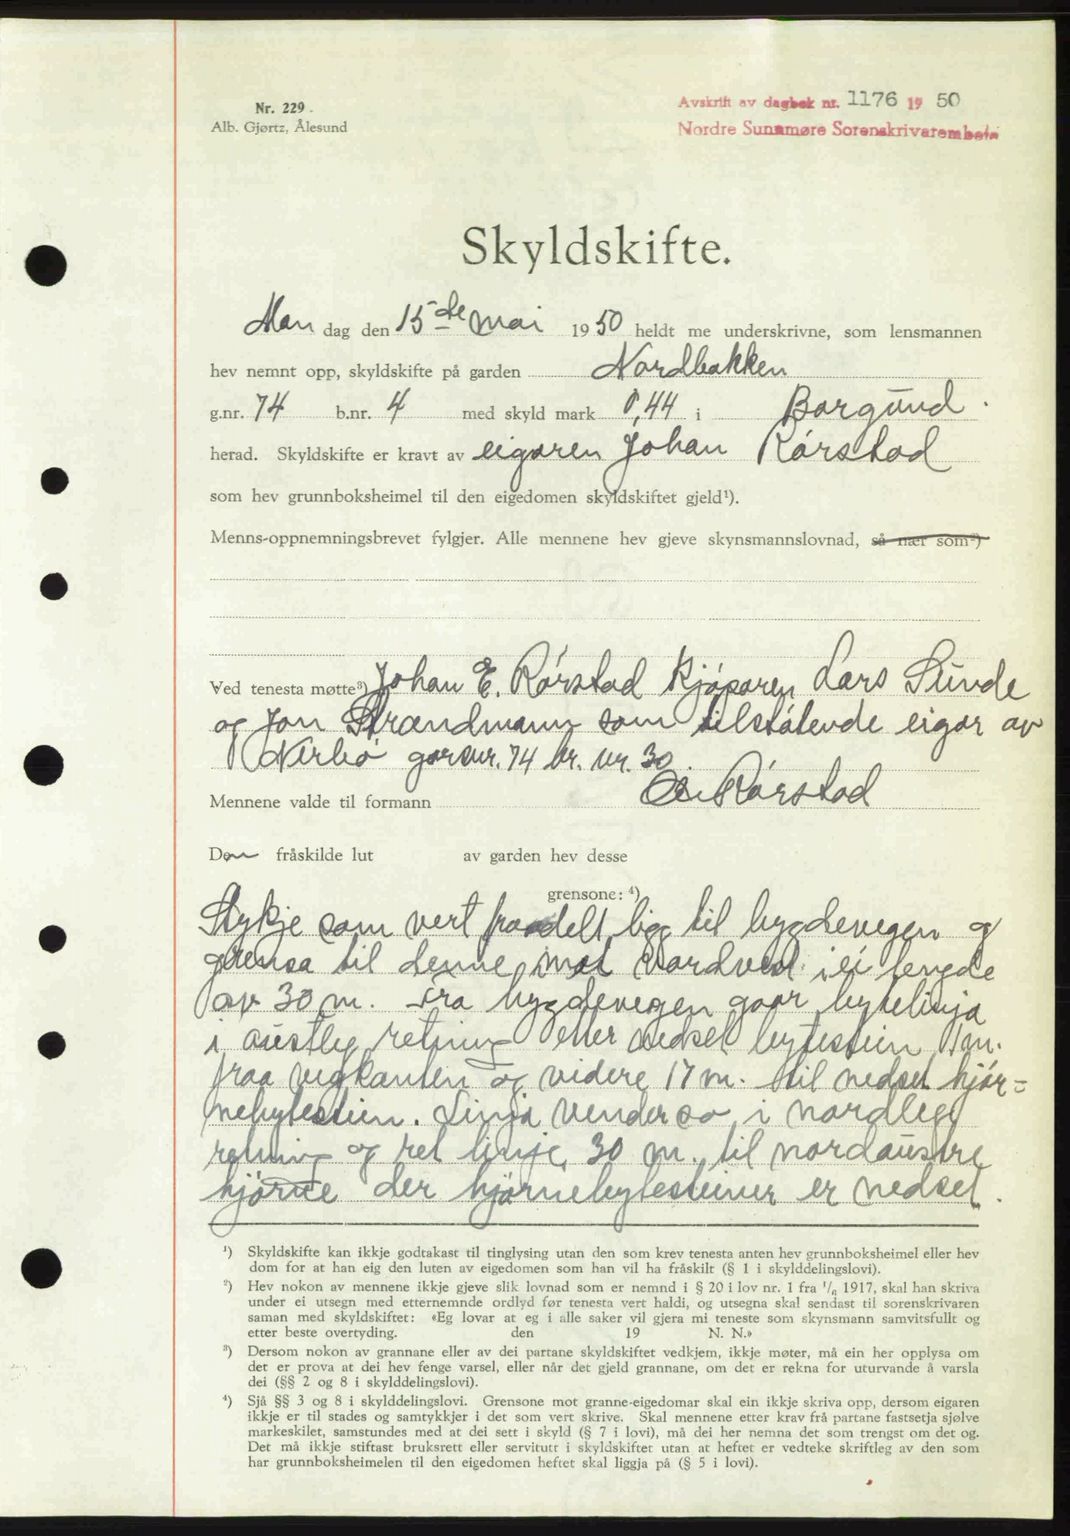 Nr. 229.
Alb. Gjørtz, Ålesund
Avskrift av dagbok nr. 1176 19 50
Nordre Sunnmøre Sorenskrivarembete
Skyldskifte.
Man dag den 15de mai 1950 heldt me underskrivne, som lensmannen
hev nemnt opp, skyldskifte på garden Nordbakken
g.nr. 74 b.nr. 4 med skyld mark 0,44 i Borgund.
herad. Skyldskifte er kravt av eigaren Johan Rørstad
som hev grunnboksheimel til den eigedomen skyldskiftet gjeld¹).
Menns-oppnemningsbrevet fylgjer. Alle mennene hev gjeve skynsmannslovnad, så nær som²)
Ved tenesta møtte³) Johan E. Rørstad kjøparen Lars Sunde
og Jon Strandmann som tilstøtende eigar av
garsnr. 74 br. nr. 30.
Mennene valde til formann Rørstad
Den fråskilde lut av garden hev desse
grensone: ⁴)
Stykje som vert fraadelt ligg til bygdevegen og
grensa til denne mot nordvest i ei lengde
av 30 m. Fra bygdevegen gaar bytelinja
i austleg retning etter nedset bytestein 1 m.
fraa vegkanten og videre 17 m. til nedset hjør-
nebytestein. Linja vender so i nordleg
retning og ret linje 30 m. til nordaustre
hjørne der hjørnebytesteiner er nedset.
¹) Skyldskifte kan ikkje godtakast til tinglysing utan den som krev tenesta anten hev grunnboksheimel eller hev
dom for at han eig den luten av eigedomen som han vil ha fråskilt (§ 1 i skylddelingslovi).
²) Hev nokon av mennene ikkje gjeve slik lovnad som er nemnd i § 20 i lov nr. 1 fra ¹/₆ 1917, skal han skriva
under ei utsegn med etternemnde ordlyd før tenesta vert haldi, og utsegna skal sendast til sorenskrivaren
saman med skyldskiftet: «Eg lovar at eg i alle saker vil gjera mi teneste som skynsmann samvitsfullt og
etter beste overtyding. den 19 N. N.»
³) Dersom nokon av grannane eller av dei partane skyldskiftet vedkjem, ikkje møter, må ein her opplysa om
det er prova at dei hev fenge varsel, eller når det gjeld grannane, om det er rekna for uturvande å varsla
dei (§§ 2 og 8 i skylddelingslovi).
⁴) Sjå §§ 3 og 8 i skylddelingslovi. Grensone mot granne-eigedomar skal ein ikkje skriva opp, dersom eigaren
ikkje er til stades og samtykkjer i det som vert skrive. Skal mennene etter krav frå partane fastsetja sjølve
markeskilet, samstundes med at dei sett i skyld (§ 7 i lovi), må dei her nemna det som trengst om det og.
Det må ikkje stiftast bruksrett eller servitutt i skyldskiftet utan at heftet er vedteke skriftleg av den som
har grunnboksheimelen til den eigedomen heftet skal liggja på (§ 5 i lovi).